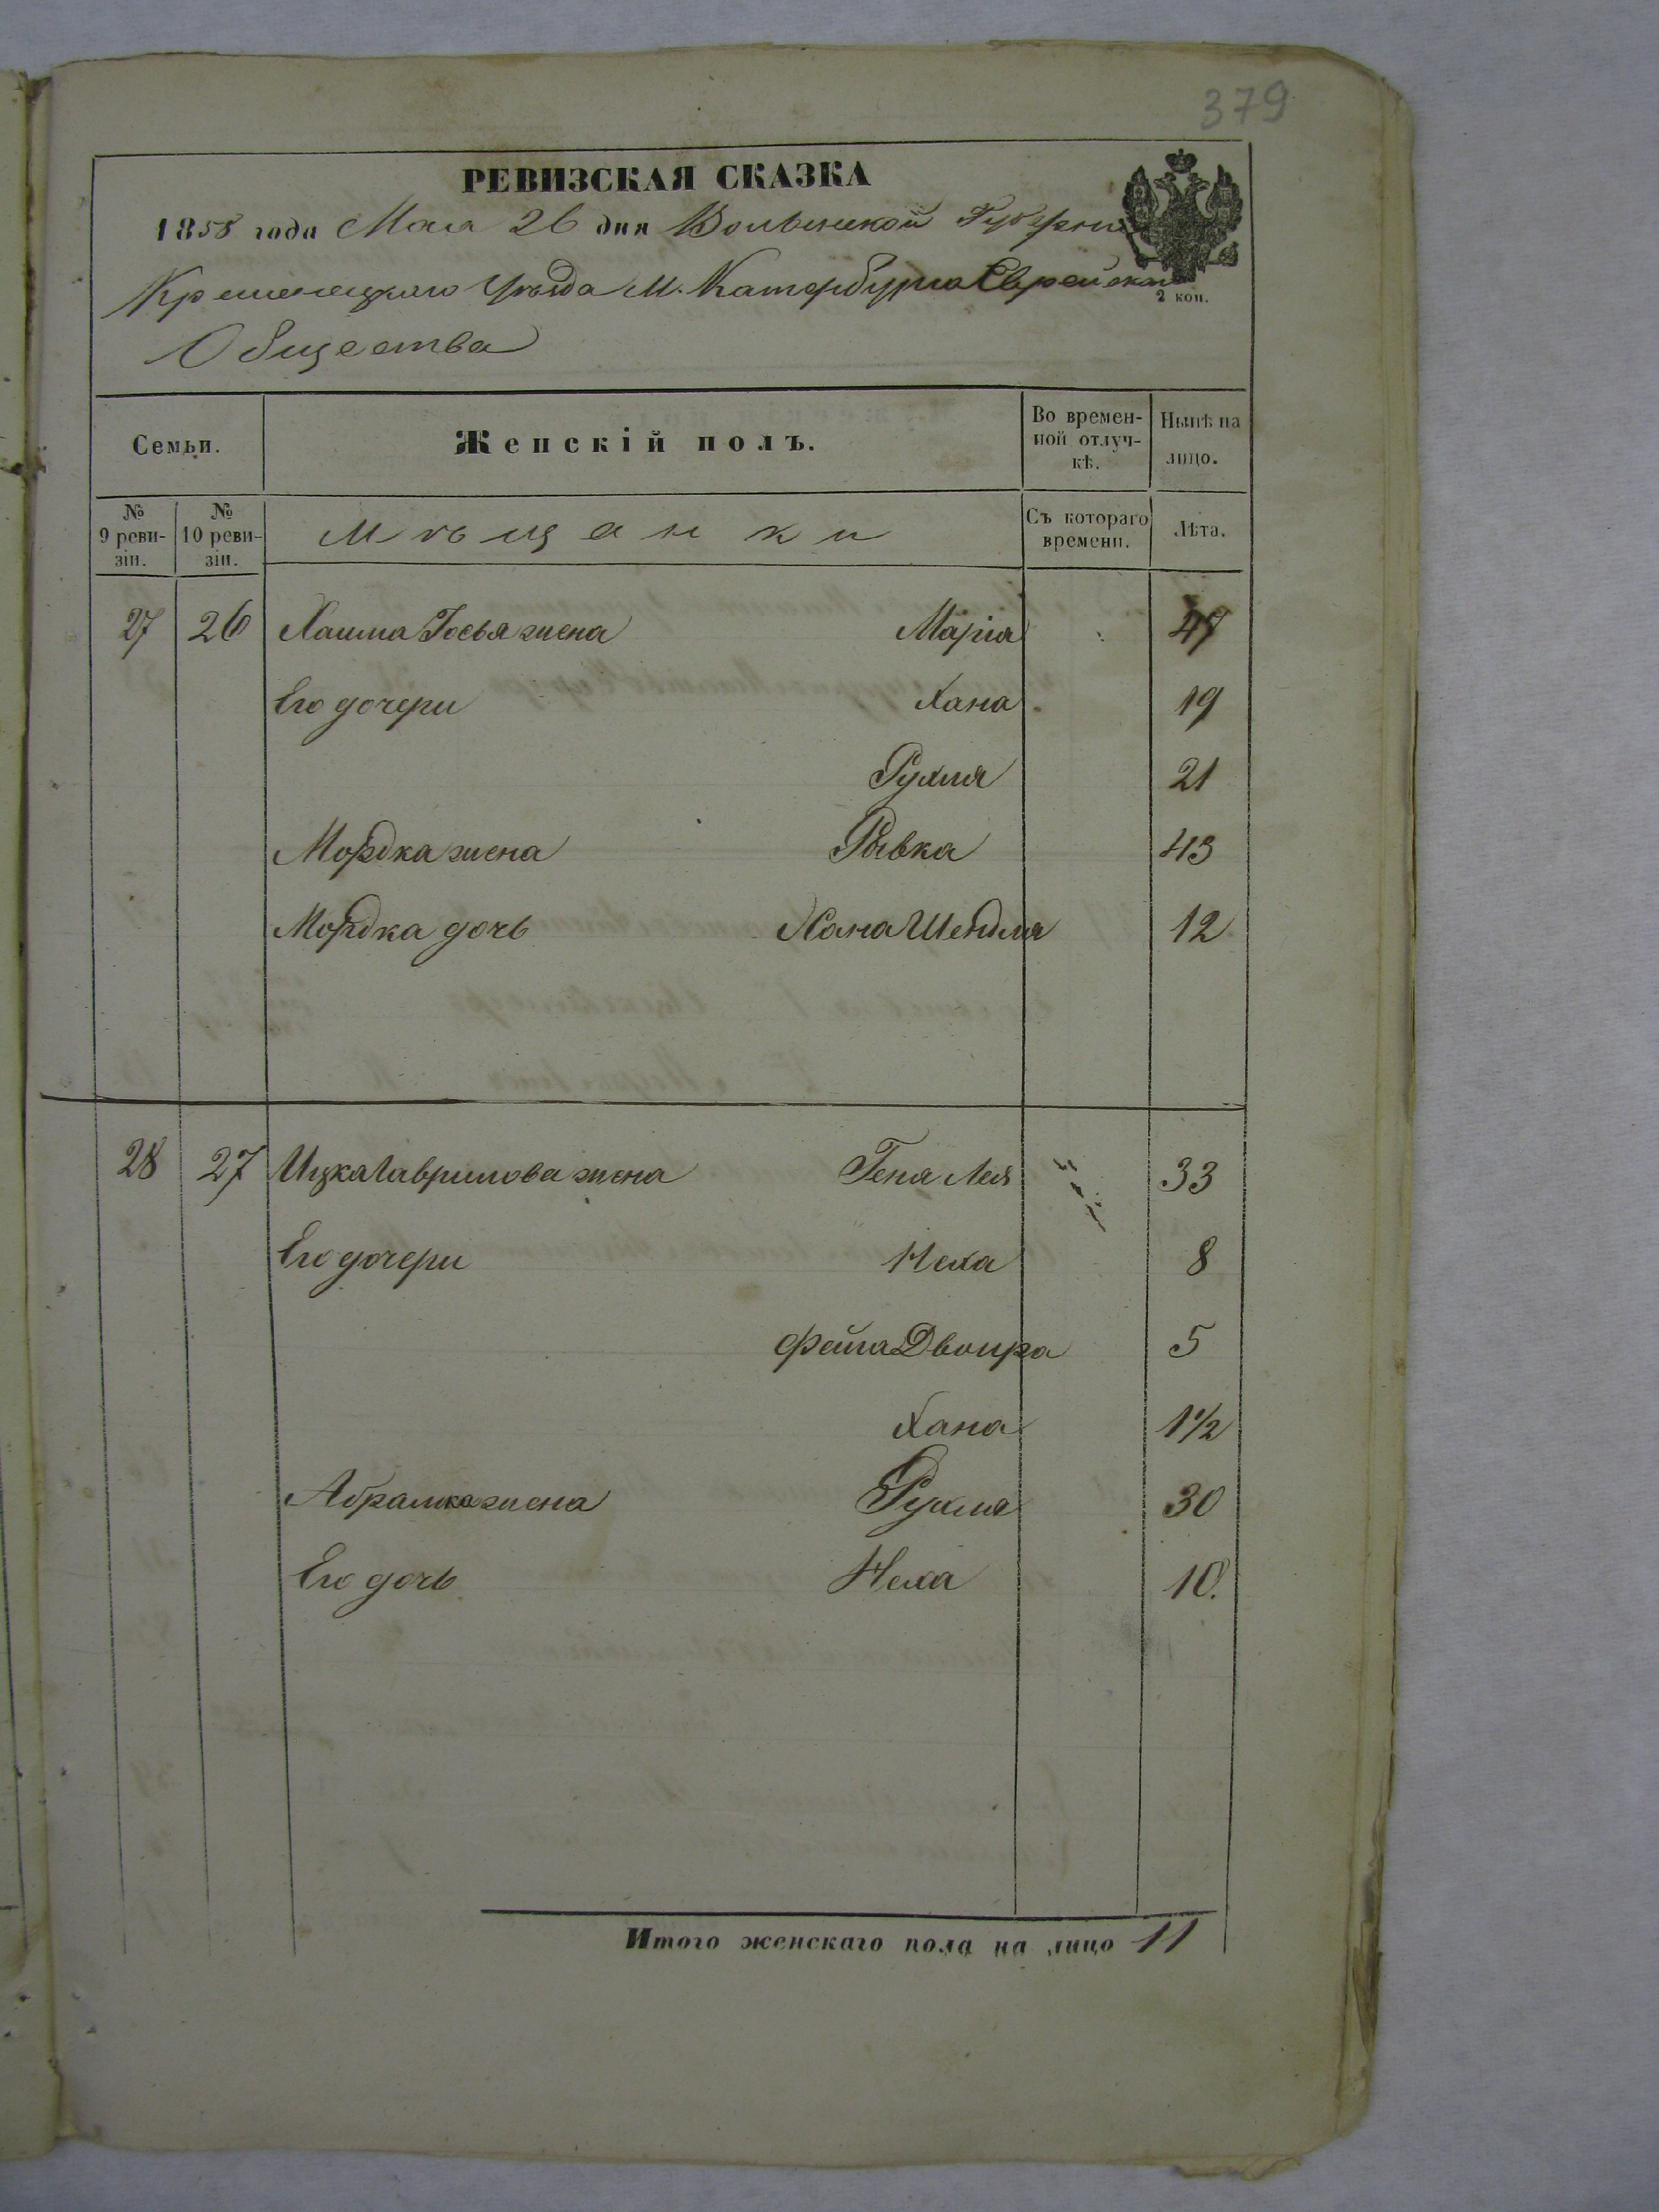 379
РЕВИЗСКАЯ СКАЗКА
1858 года Мая 26 дня Волынской Губерніи
Кременецкаго Уѣзда М. Катербурга Еврейскаго
2 коп.
Общества
Семьи.
Женскій полъ.
Во времен-
ной отлуч-
кѣ.
Нынѣ на
лицо.
№
9 реви-
зіи.
№
10 реви-
зіи.
Мѣщанки
Съ котораго
времени.
Лѣта.
27 26 Хаима жена Марія 47
Его дочери Хана 19
Рухля 21
Мордка жена Рывка 43
Мордка дочь Хана Шендля 12
28 27 Ицка Гаврилова жена Геня Лея 33
Его дочери Неха 8
Фейга Двойра 5
Хана 1 1/2
Абрамка жена Рухля 30
Его дочь Неха 10.
Итого женскаго пола на лицо 11